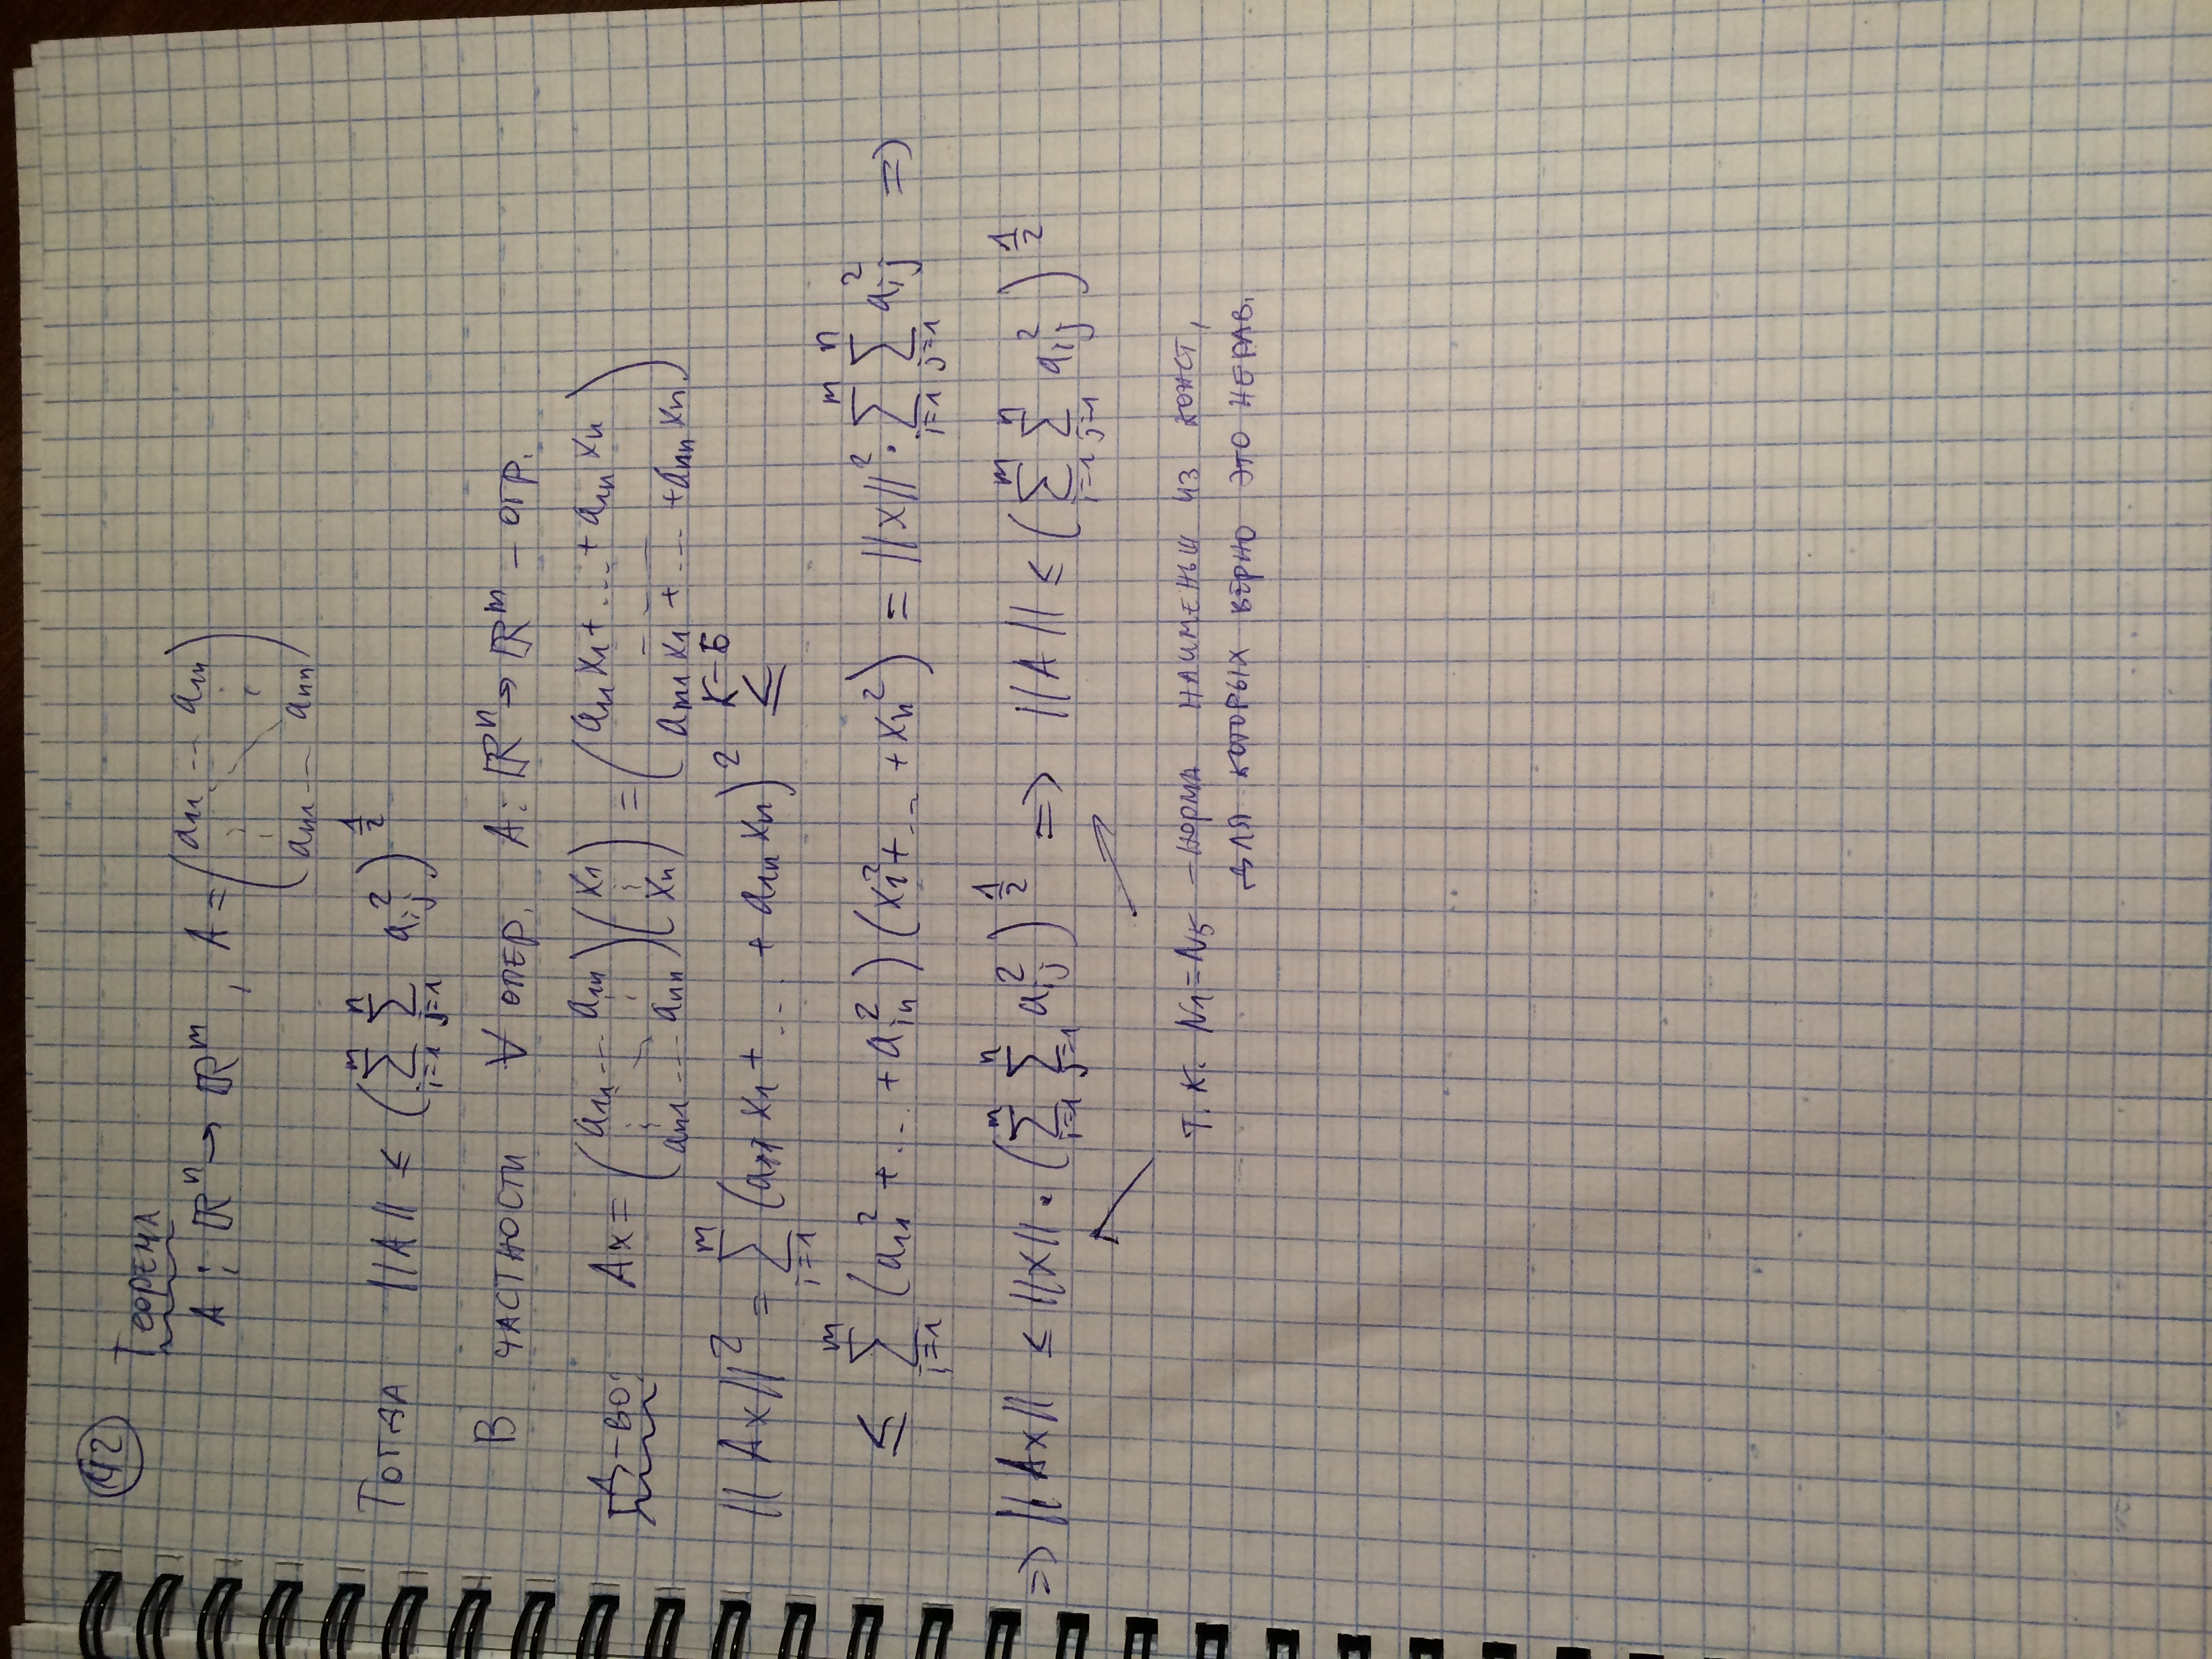 42
Теорема
A : ℝⁿ → ℝᵐ, A = (a₁₁ ... a₁ₙ ⋮ ⋱ ⋮ aₙ₁ ... aₙₙ)
Тогда ||A|| ≤ (∑_{i=1}^{m} ∑_{j=1}^{n} a_{ij}²)^{1/2}
В частности ∀ опер. A: ℝⁿ → ℝᵐ – огр.
Д-во: Ax = (a₁₁ ... a₁ₙ ⋮ ⋱ ⋮ aₙ₁ ... aₙₙ)(x₁ ⋮ xₙ) = (a₁₁x₁ + ... + a₁ₙxₙ - - - aₘ₁x₁ + ... + aₙₙxₙ)
||Ax||² = ∑_{i=1}^{m} (a₁₁x₁ + ... + a₁ₙxₙ)² ≤ К-Б
≤ ∑_{i=1}^{m} (a₁₁² + ... + a_{in}²)(x₁² + ... + xₙ²) = ||x||² · ∑_{i=1}^{m} ∑_{j=1}^{n} a_{ij}² =>
=> ||Ax|| ≤ ||x|| · (∑_{i=1}^{m} ∑_{j=1}^{n} a_{ij}²)^{1/2} => ||A|| ≤ (∑_{i=1}^{m} ∑_{j=1}^{n} a_{ij}²)^{1/2}
т.к. N₁ = N₅ – норма наименьш из конст,
для которых верно это нерав.